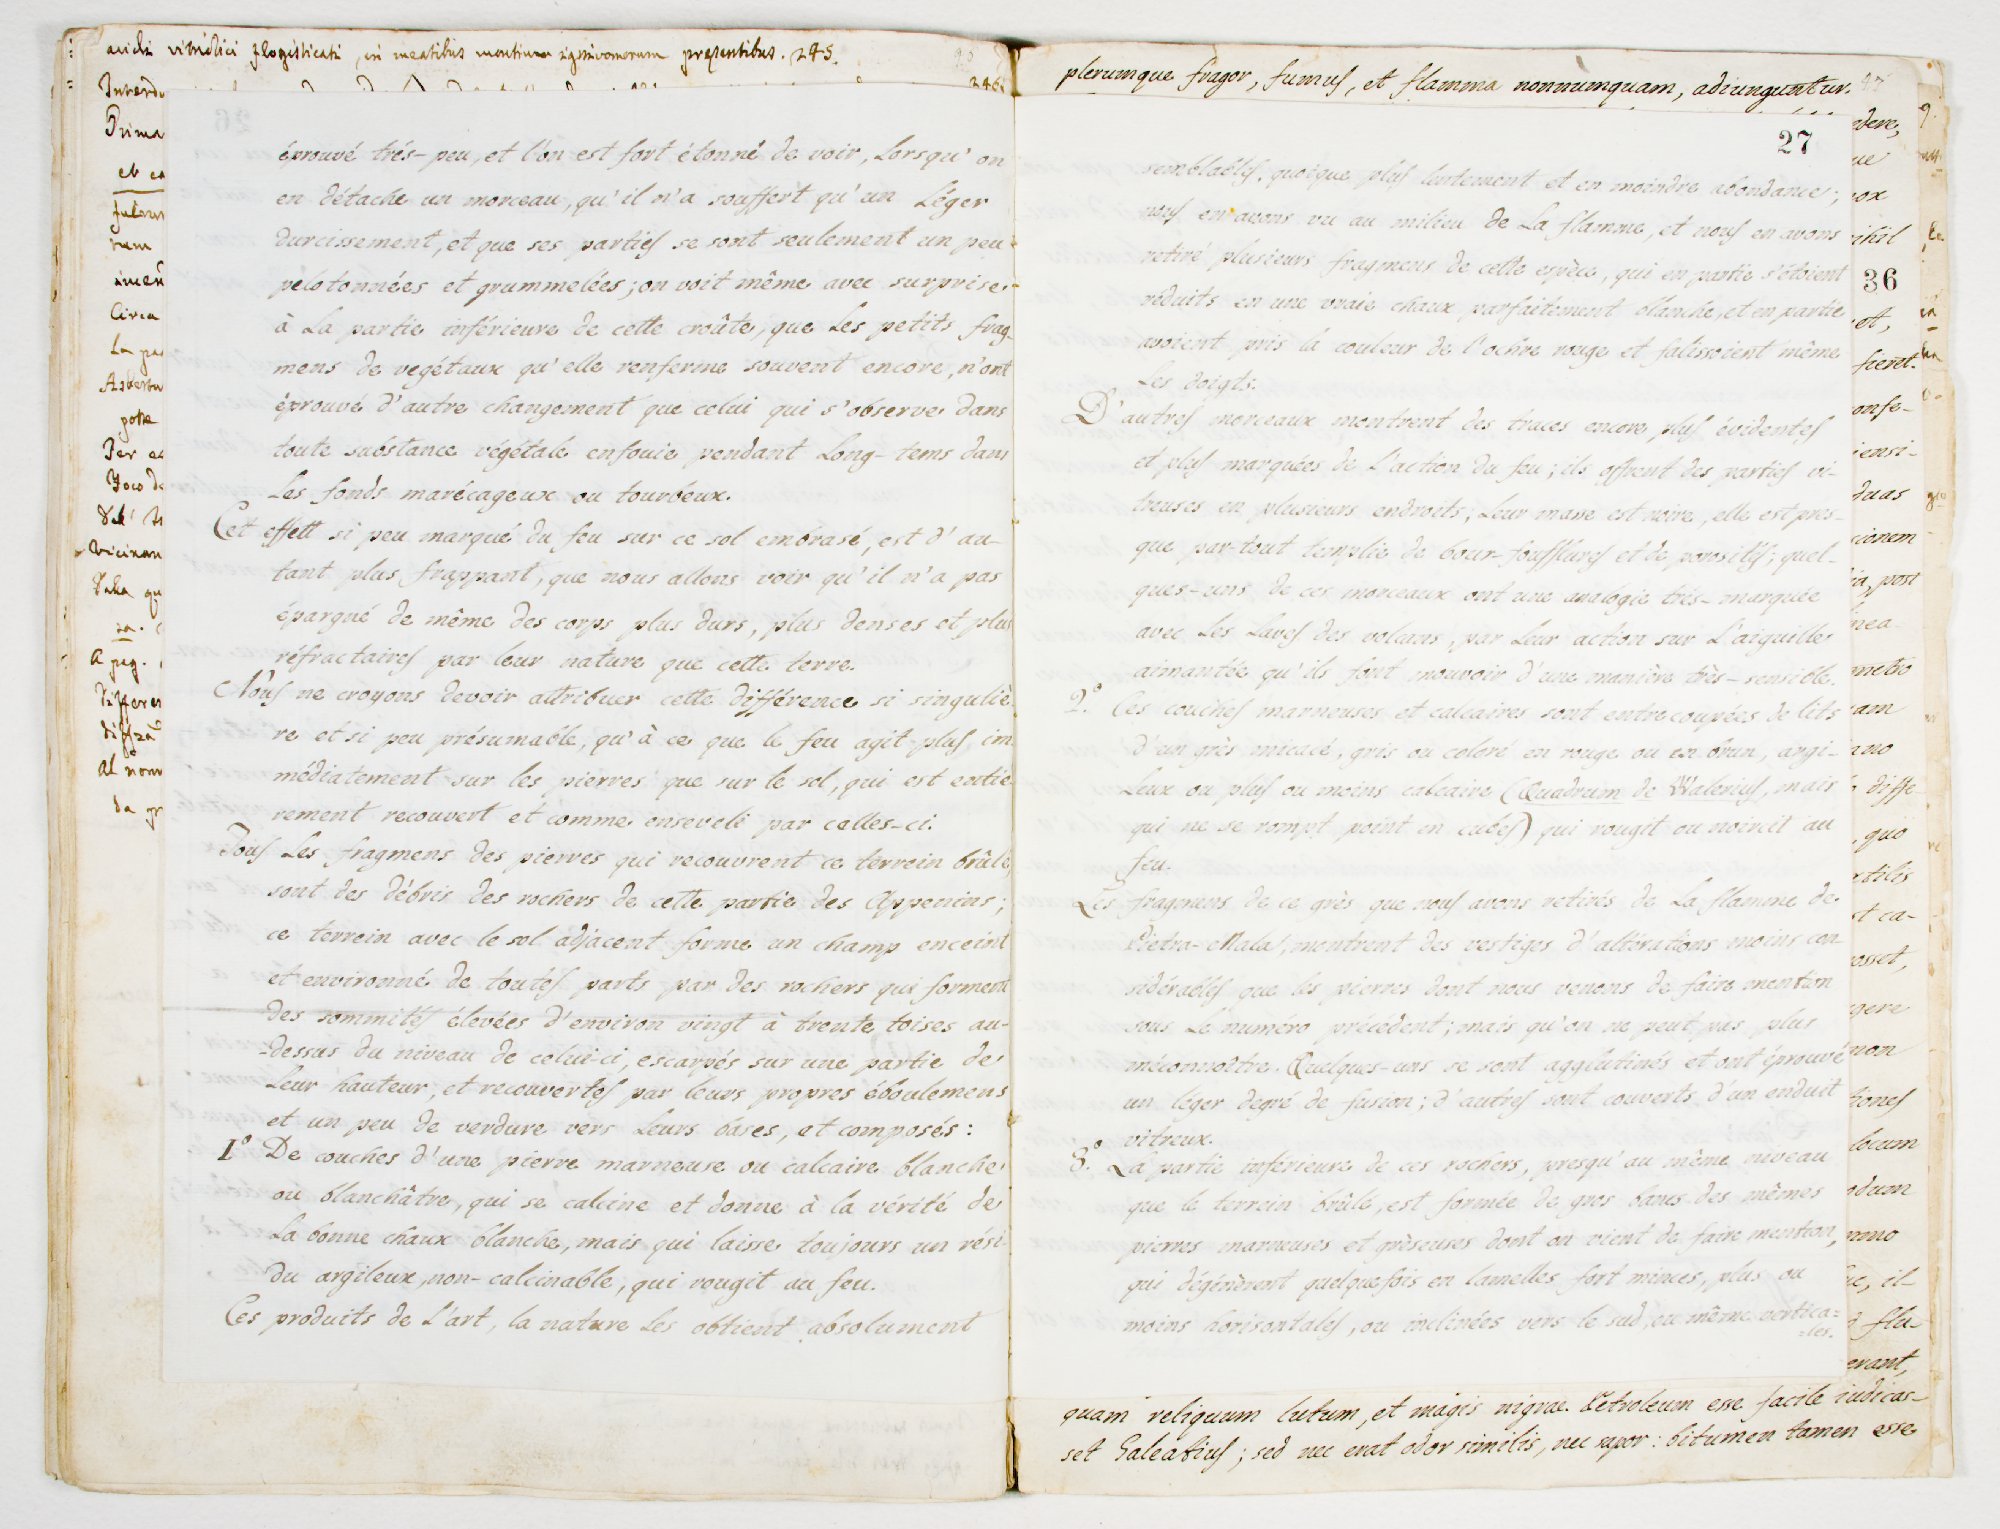 acidi vitriolici flogisticati, in meatibus montium ignivomorum presentibus. 245.
246.
éprouvé trés-peu, et l'on est fort étonné de voir, Lorsqu'on
en détache un morceau, qu'il n'a souffert qu'un Léger
durcissement, et que ses parties se sont seulement un peu
pelotonnées et grummelées; on voit même avec surprise
à La partie inférieure de cette croûte, que Les petits frag-
mens de vegétaux qu'elle renferme souvent encore, n'ont
éprouvé d'autre changement que celui qui s'observe dans
toute substance végétale enfouie pendant Long-tems dans
Les fonds marécageux ou tourbeux.
Cet effett si peu marqué du feu sur ce sol embrasé, est d'au-
tant plus frappant, que nous allons voir qu'il n'a pas
épargné de même des corps plus durs, plus denses et plus
réfractaires par leur nature que cette terre.
Nous ne croyons devoir attribuer cette différence si singuliè-
re et si peu présumable, qu'à ce que le feu agit plus im-
médiatement sur les pierres que sur le sol, qui est entié-
rement recouvert et comme enseveli par celles-ci.
Tous Les fragmens des pierres qui recouvrent ce terrein brûlé,
sont des débris des rochers de cette partie des Appenins;
ce terrein avec le sol adjacent forme un champ enceint
et environné de toutes parts par des rochers qui forment
des sommités élevées d'environ vingt à trente toises au-
-dessus du niveau de celui-ci, escarpés sur une partie de
Leur hauteur, et recouvertes par leurs propres éboulemens
et un peu de verdure vers Leurs bases, et composés:
1° De couches d'une pierre marneuse ou calcaire blanche
ou blanchâtre, qui se calcine et donne à la vérité de
La bonne chaux blanche, mais qui laisse toujours un rési-
du argileux, non-calcinable, qui rougit au feu.
Ces produits de L'art, la nature Les obtient absolument
plerumque fragor, fumus, et flamma nonnumquam, adiunguntur.
27
semblables, quoique plus lentement et en moindre abondance;
nous en avons vu au milieu de La flamme, et nous en avons
retiré plusieurs fragmens de cette espèce, qui en partie s'étoient
réduits en une vraie chaux parfaitement blanche, et en partie
avoient pris la couleur de l'ochre rouge et salissoient même
Les doigts.
D'autres morceaux montrent des traces encore plus évidentes
et plus marquées de L'action du feu; ils offrent des parties vi-
treuses en plusieurs endroits; Leur masse est noire, elle est pres-
que par-tout remplie de bour-soufflures et de porosités; quel-
ques-uns de ces morceaux ont une analogie très-marquée
avec Les Laves des volcans, par Leur action sur L'aiguille
aimantée qu'ils font mouvoir d'une manière très-sensible.
2.° Ces couches marneuses et calcaires sont entrecoupées de lits
d'un grès micacé, gris ou coloré en rouge ou en brun, argi-
Leux ou plus ou moins calcaire (Quadrum de Walerius, mais
qui ne se rompt point en cubes) qui rougit ou noircit au
feu.
Les fragmens de ce grès que nous avons retirés de La flamme de
Pietra-Mala, montrent des vestiges d'altérations moins con-
sidérables que les pierres dont nous venons de faire mention
sous Le numéro précédent; mais qu'on ne peut pas plus
méconnoître. Quelques-uns se sont agglutinés et ont éprouvé
un léger degré de fusion; d'autres sont couverts d'un enduit
vitreux.
3.° La partie inférieure de ces rochers, presqu'au même niveau
que le terrein brûlé, est formée de gros bancs des mêmes
pierres marneuses et grèseuses dont on vient de faire mention,
qui dégénèrent quelquefois en lamelles fort minces, plus ou
moins horisontales, ou inclinées vers le sud, ou même vertica=
=les.
36
quam reliquum lutum, et magis nigrae. Petroleum esse facile iudicas-
set Galeatius; sed nec erat odor similis, nec sapor: bitumen tamen esse